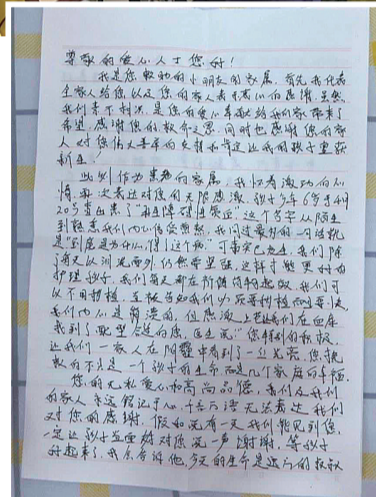 尊敬的爱心人士您好！
我是您救助的小朋友的家属，首先我代表
全家人给您以及您的家人表示衷心的感谢，虽然
我们素不相识，是您的爱心奉献给我们家带来了
希望，感谢您的救命之恩，同时也感谢您的家
人对您伟大善举的支持和肯定让我的孩子重获
新生！
此刻作为患者的家属，我怀着激动的心
情，再次表达对您的无限感激，孩子今年6岁
20号查出来了"再生障碍性贫血，这个名字从陌生
到熟悉我们内心倍受煎熬，我问过最多的一句话就
是"到底是为什么，得了这个病"可事实已发生，我们除
了每天以泪洗面外，仍然要坚强，这样才能更好的
护理孩子，我们每天都在
以不用移植，当被告知我们必须要移植时
我们内心是崩溃的，但感谢上苍让我们在血库
找到了配型合适的您，医生说"您特别的积极，
让我们一家人在阴霾中看到了一丝光亮，您拯
救的不只是一个孩子的生命而是几个家庭的幸福。
您的无私爱心和高尚品德，我们及我们
的家人永远铭记于心，千言万语无法表达我们
对您的感谢，假如说有一天我们能见到您，
一定让孩子当面对您说一声谢谢，等孩子
好起来了，我会告诉他，今天的生命是